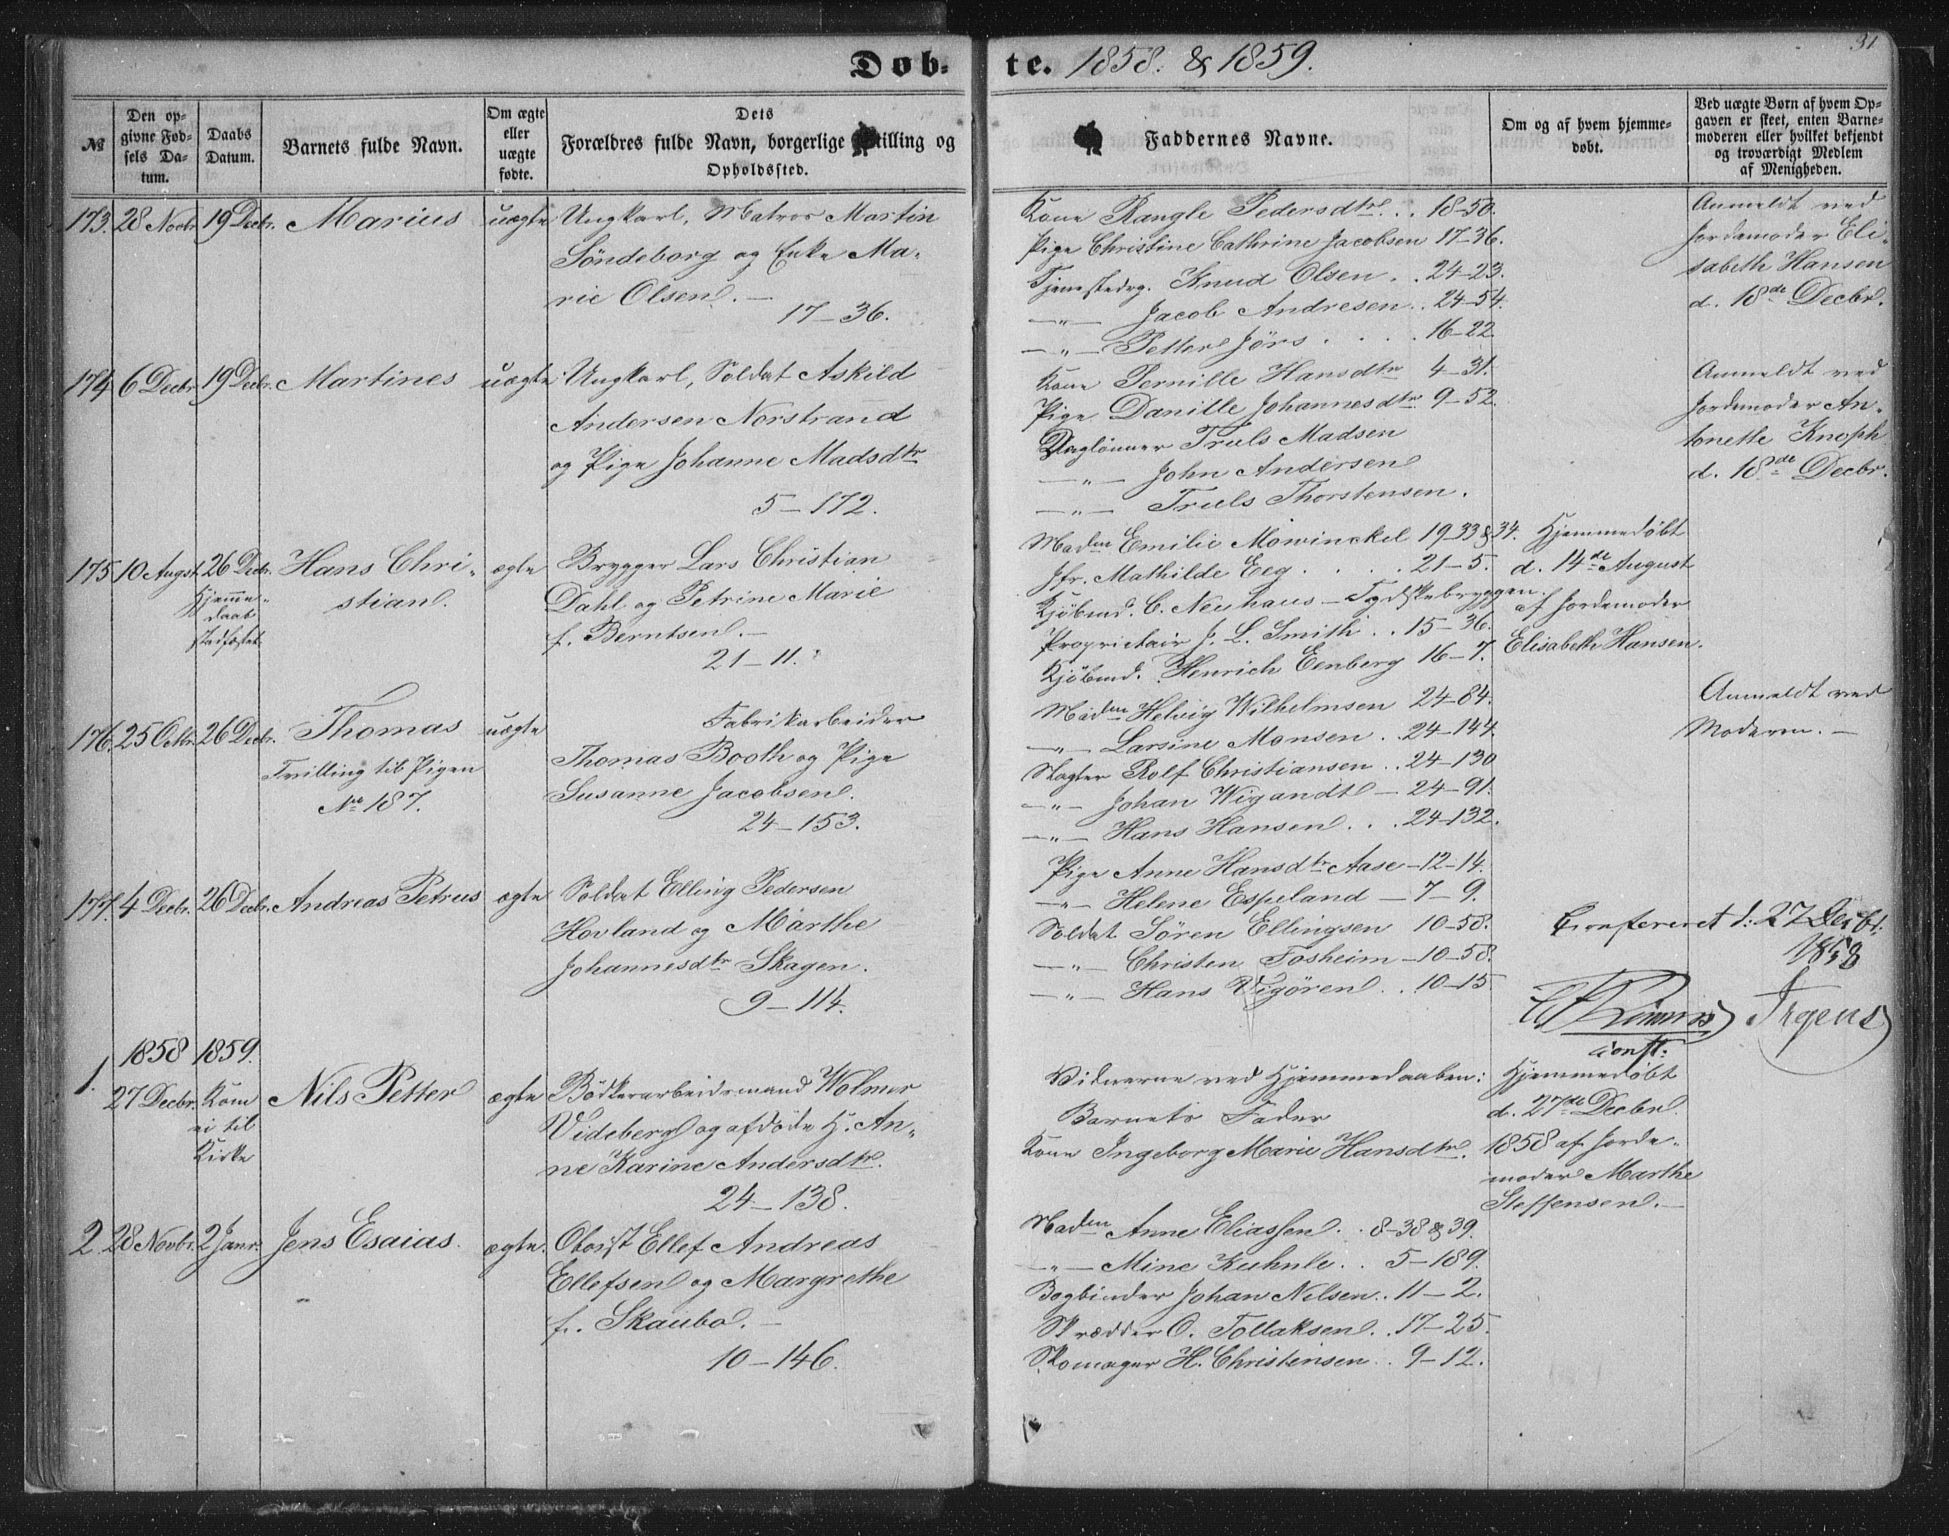 Døb-
te. 1858. & 1859.
31
№
Den op-
givne Fød-
sels Da-
tum.
Daabs
Datum.
Barnets fulde Navn.
Om ægte
eller
uægte
fødte.
Dets
Forældres fulde Navn, borgerlige Stilling og
Opholdssted.
Faddernes Navne.
Om og af hvem hjemme-
døbt.
Ved uægte Børn af hvem Op-
gaven er skeet, enten Barne-
moderen eller hvilket bekjendt
og troværdigt Medlem
af Menigheden.
173. 28 Novbr. 19 Decbr. Marius uægte Ungkarl, Matros Martin
Söndeborg og Enke Ma-
rie Olsen. —
17–36.
Kone Rangle Pedersdtr. . . 18–50.
Pige Christine Cathrine Jacobsen 17–36.
Tjenestedrg. Knud Olsen . . 24–23.
—„— Jacob Andresen . . 24–54.
—„— Petter Jörs . . . . 16–22
Anmeldt ved
Jordemoder Eli-
sabeth Hansen
d. 18de Decbr.
174 6 Decbr. 19 Decbr. Martines uægte Ungkarl, Soldat Askild
Andersen Norstrand
og Pige Johanne Madsdtr
5–172.
Kone Pernille Hansdtr 4–31.
Pige Danille Johannesdtr 9–52.
Daglönner Truls Madsen
—„— John Andersen
—„— Truls Thorstensen.
Anmeldt ved
Jordemoder An-
tonette Knoph
d. 18de Decbr.
175 10 Augst. 26 Decbr. Hans Chri- ægte Brygger Lars Christian
Hjemme-
daab
stadfæstet.
stian.
Dahl og Petrine Marie
f. Berntsen. —
21–11.
Madm Emilie Mowinckel 19–33 & 34.
Jfr. Mathilde Eeg . . . . 21–5.
Kjöbmd. C. Neuhaus – Tydskebryggen.
Proprietair J. L. Smith . . 15–36.
Kjöbmd. Henrich Eenberg 16–7.
Hjemmedøbt
d. 14de August
af Jordemoder
Elisabeth Hansen.
176. 25 Octbr. 26 Decbr. Thomas uægte Fabrikarbeider
Tvilling til Pigen
No 187.
Thomas Booth og Pige
Susanne Jacobsen.
24–153.
Madm Helvig Wilhelmsen 24–84.
—„— Larsine Monsen . . 24–144.
Slagter Rolf Christiansen . . 24–130
—„— Johan Wigandt – 24–91.
—„— Hans Hansen . . . 24–132.
Anmeldt ved
Moderen. —
177. 4 Decbr. 26 Decbr. Andreas Petrus ægte Soldat Elling Pedersen
Hovland og Marthe
Johannesdtr Skagen.
9–114.
Pige Anne Hansdtr Aase –12–14.
—„— Helene Espeland – 7–9.
Soldat Sören Ellingsen 10–58.
—„— Christen Fosheim –10–58.
—„— Hans Vigören . . 10–15.
Confereret d: 27 Decbr.
1858
Irgens
const:
1858 1859.
1. 27 Decbr. Kom Nils Petter ægte Bödkerarbeidsmand Wolmer
ei til
Kirke
Videberg og afdöde H. An-
ne Karine Andersdtr.
24–138.
Vidnerne ved Hjemmedaaben:
Barnets Fader
Kone Ingeborg Marie Hansdtr.
Hjemmedøbt
d. 27de Decbr.
1858 af Jorde-
moder Marthe
Steffensen. —
2. 28 Novbr. 2 Janr. Jens Esaias. ægte. Oboist Ellef Andreas
Ellefsen og Margrethe
f. Skaubo. —
10–146.
Madm Anne Eliassen . . 8–38 & 39.
—„— Mine Kuhnle . . 5–189.
Bogbinder Johan Nilsen . . 11–2.
Skrædder O. Tollaksen . . 17–25.
Skomager H. Christensen . . 9–12.